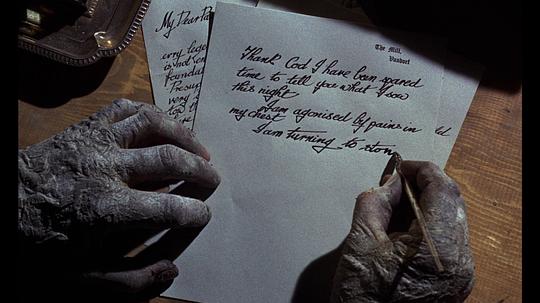 My Dear Pa
erry lege
is not en
founda
Presu
very
The Mill,
Vandorf
Thank God I have been spared
time to tell you what I saw
this night
I am agonised by pains in
my chest
I am turning to ston